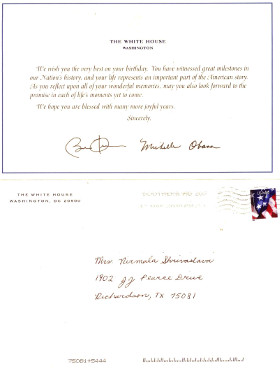 THE WHITE HOUSE
WASHINGTON
We wish you the very best on your birthday. You have witnessed great milestones in
our Nation's history, and your life represents an important part of the American story.
As you reflect upon all of your wonderful memories, may you also look forward to the
promise in each of life's moments yet to come.
We hope you are blessed with many more joyful years.
Sincerely,
Michelle Obama
THE WHITE HOUSE
WASHINGTON, DC 20500
Mrs. Nirmala Shrivastava
1402 JJ Pearce Drive
Richardson, TX 75081
75081+5444